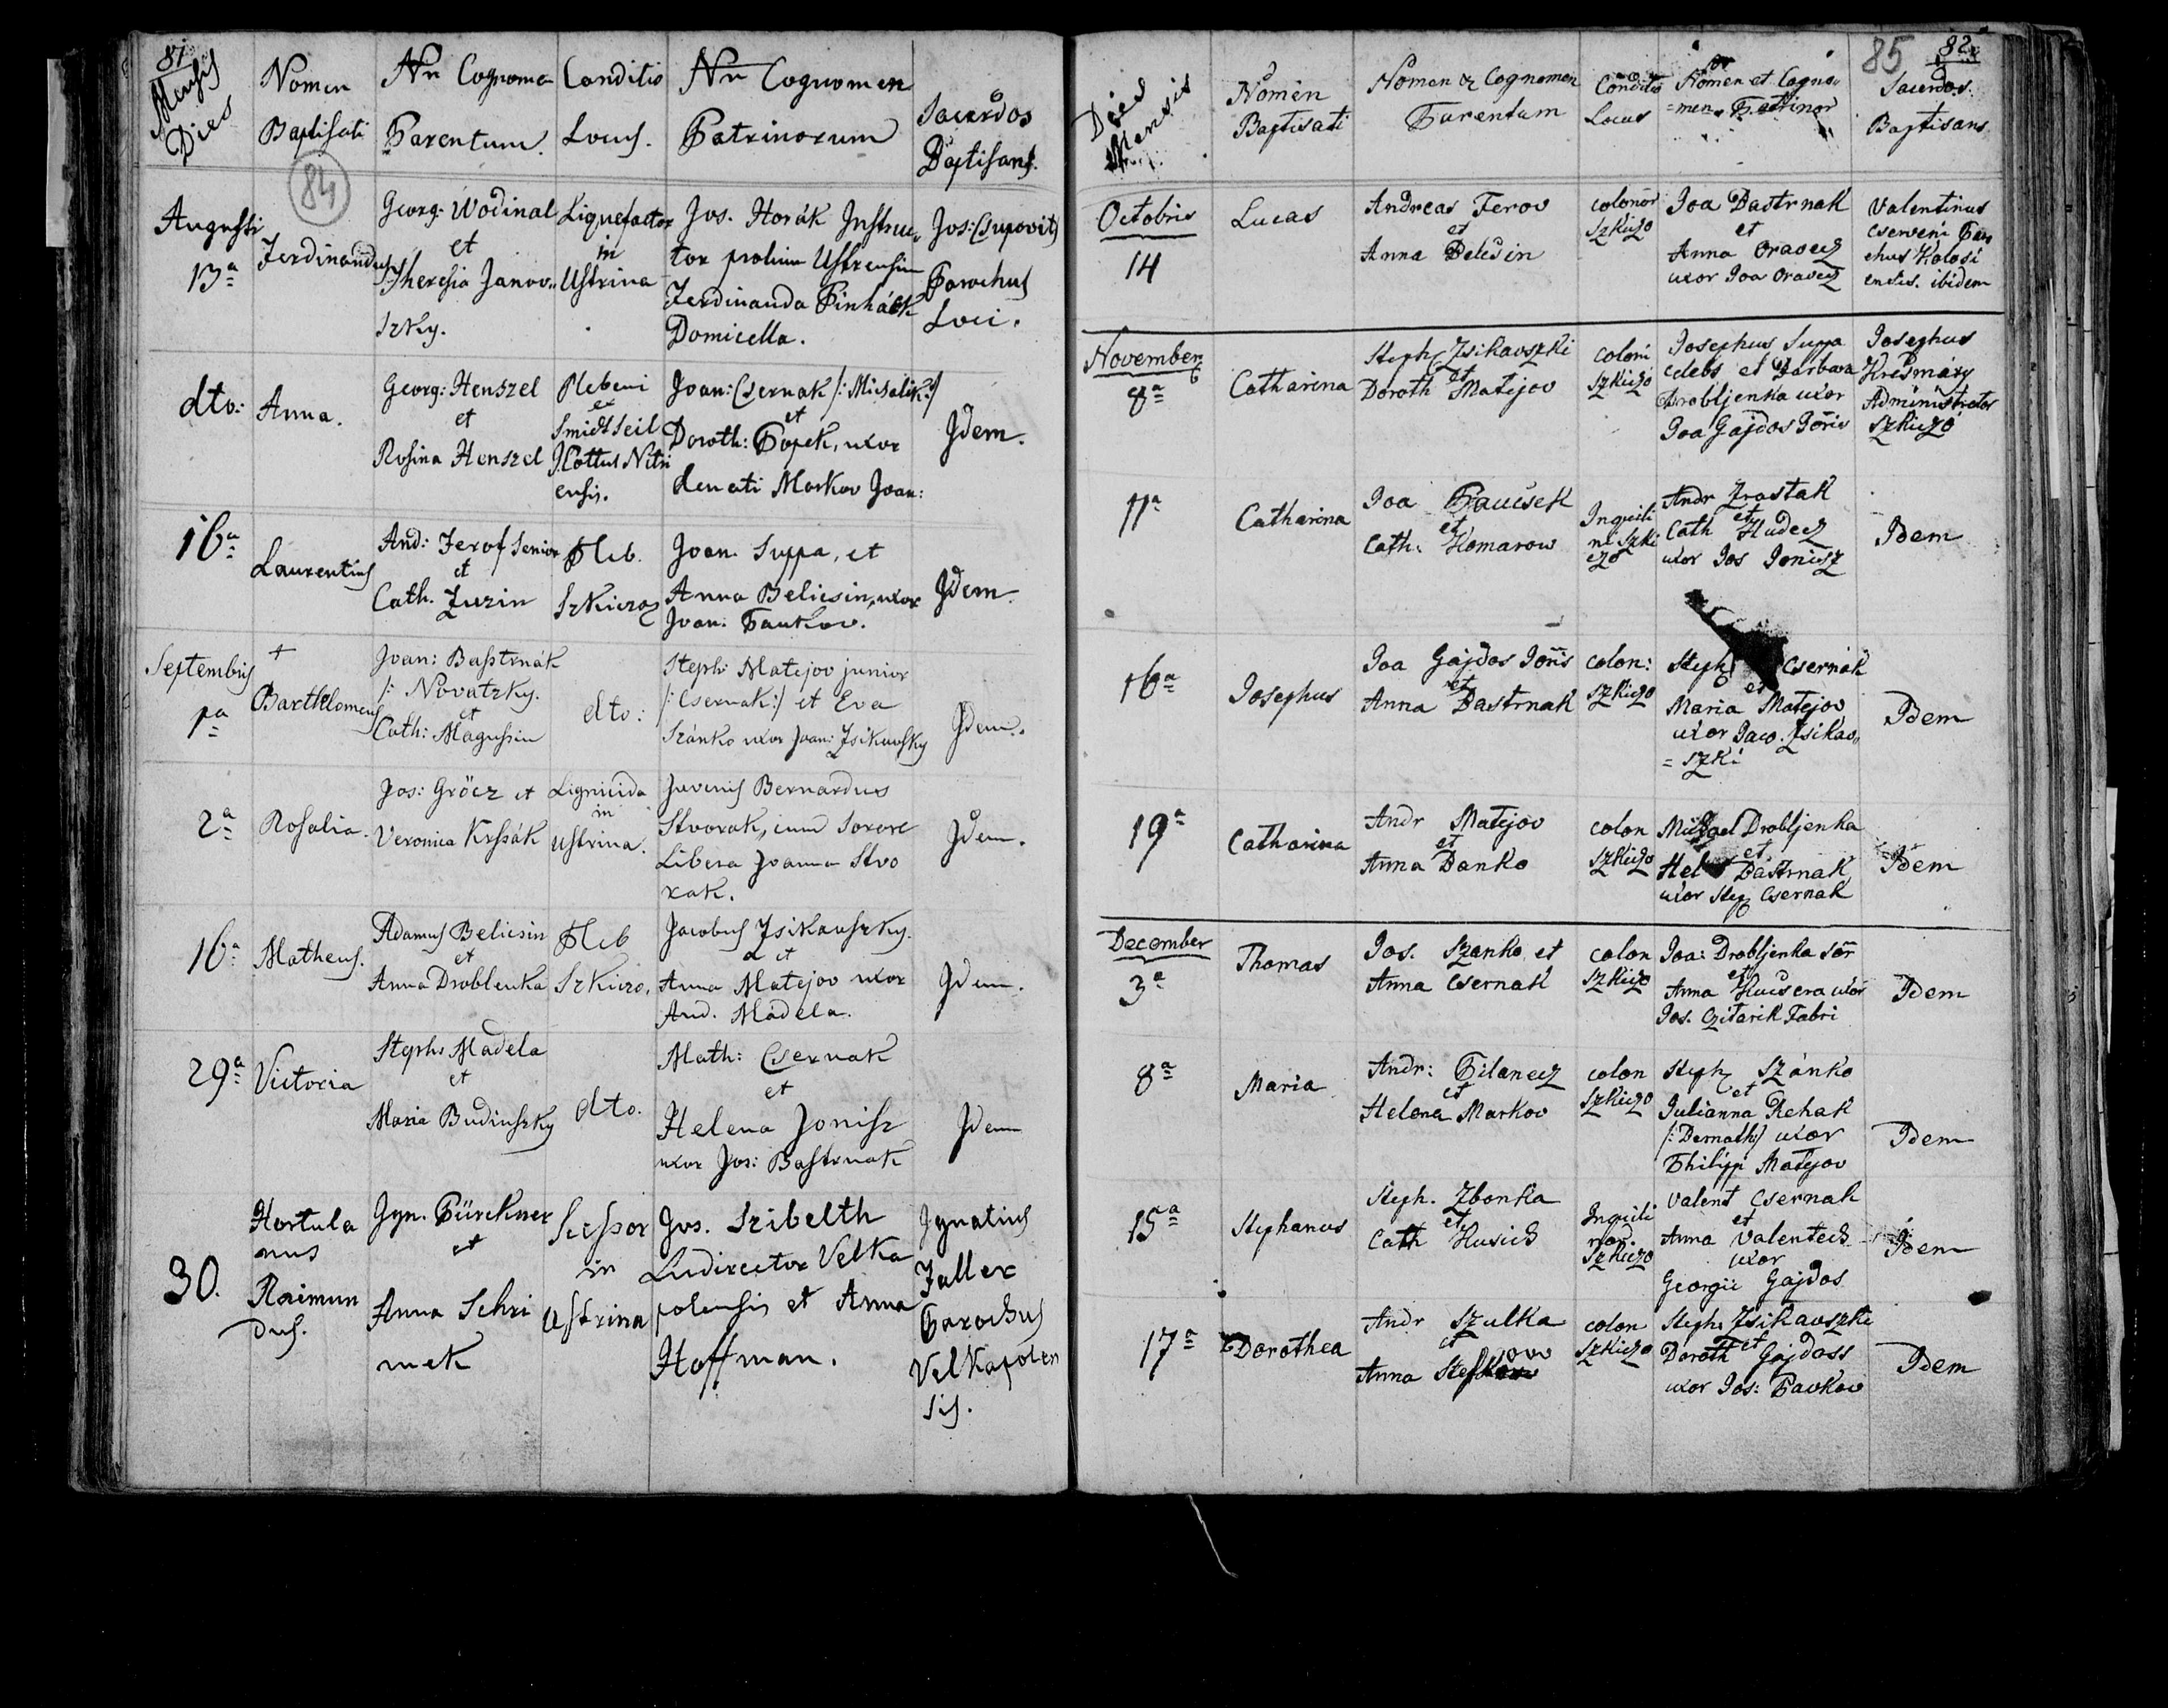 81
Mensis
Dies
Nomen
Baptisati
Nn Cognomen
Parentum.
Conditio
Locus.
Nn Cognomen
Patrinorum
Sacerdos
Baptisans.
84
Augusti
13a
Ferdinandus
Georg: Wodinal
et
Theresia Janov„
szky.
Liquefactor
in
Ustrina
Jos. Horák Instruc„
tor prolium Ustrensium
Ferdinanda Pinhák
Domicella.
Jos: Csupovits
Parochus
Loci.
dto:
Anna.
Georg: Henszel
et
Rosina Henszel
Plebeni
ex
Smidtseil
J. Cottus Nitri
ensis.
Joan: Csernak /: Misalik :/
et
Doroth: Popek, uxor
denati Markov Joan:
Idem.
16a
Laurentius
And: Ferof Senior
et
Cath. Zuzin
Pleb.
Szkiczo
Joan. Suppa, et
Anna Belicsin, uxor
Joan: Paukov.
Idem.
Septembris
1a
+
Bartholomeus
Joan: Bastrnák
/: Novatzky.
et
Cath: Magussin
dto:
Steph: Matejov junior
/: Csernak :/ et Eva
Szánko uxor Joan: Zsikavszky
Idem.
2a
Rosalia.
Jos: Gröcz et
Veronica Krssák
Lignicida
in
Ustrina.
Juvenis Bernardus
Stvorak, cum sorore
Libera Joanna Stvo
rak.
Idem.
16a
Matheus.
Adamus Belicsin
et
Anna Droblenka
Pleb
Szkiczo.
Jacobus Zsikauszky.
et
Anna Matejov uxor
And. Madela.
Idem.
29a
Victoria
Steph: Madela
et
Maria Budinszky
dto.
Math: Csernak
et
Helena Jonisz
uxor Jos: Bastrnak
Idem
30.
Hortula
nus
Raimun
dus.
Ign. Pürckner
et
Anna Schri
mek
Sessor
in
Ustrina
Jos. Szibelth
Ludirector Velka
polensis et Anna
Hoffman.
Ignatius
Faller
Parochus
Velkapolen
sis.
85
82
Dies
Mensis
Nomen
Baptisati
Nomen & Cognomen
Parentum
Conditio
Locus
Nomen et Cogno„
=men Patrinor
Sacerdos
Baptisans
Octobris
14
Lucas
Andreas Ferov
et
Anna Belešin
colonor
Szkiczo
Joa Bastrnak
et
Anna Oravecz
uxor Joa Oravecz
Valentinus
Cserveni Paro
chus Kolosi
ensis. ibidem
November
8a
Catharina
Steph Zsikavszki
et
Doroth Matejov
coloni
Szkiczo
Josephus Suppa
celebs et Barbara
Drobljenka uxor
Joa Gajdos Joñis
Josephus
Kresmáry
Administrator
Szkiczó
11a
Catharina
Joa Paucsek
et
Cath. Komarow
Inquili
ni Szki
czo
Andr Zrastak
et
Cath Hudecz
uxor Jos Jonisz
Idem
16a
Josephus
Joa Gajdos Joñis
et
Anna Bastrnak
colon:
Szkiczo
Steph Csernak
et
Maria Matejov
uxor Jaco. Zsikav„
=szki
Idem
19a
Catharina
Andr Matejov
et
Anna Danko
colon
Szkiczo
Michael Drobljenka
et
Bastrnak
uxor Step Csernak
Idem
December
3a
Thomas
Jos. Szanko et
Anna Csernak
colon
Szkiczo
Joa: Drobljenka Sör
et
Anna Kucsera uxor
Jos. Czitarik Fabri
Idem
8a
Maria
Andr: Pilanecz
et
Helena Markov
colon
Szkiczo
Steph Szánko
et
Julianna Rehak
/: Demathis uxor
Philipp Matejov
Idem
15a
Stephanus
Steph. Zbonka
et
Cath Kusich
Inquili
nor
Szkiczo
Valent Csernak
et
Anna Valentech
uxor
Georgii Gajdos
Idem
17a
Dorothea
Andr Szulka
et
Anna
colon
Szkiczo
Steph Zsikavszki
et
Doroth Gajdoss
uxor Jos: Pavkov
Idem